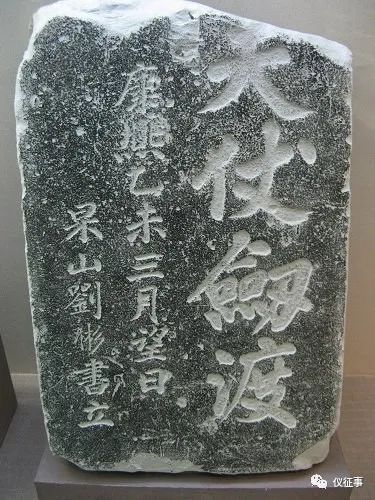 夫仗劒渡
康熙乙未三月望日
杲山劉彬書立
仪征事